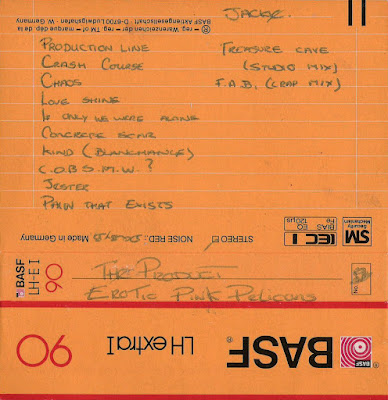 JACKIE.
® = reg. Warenzeichen der • reg. TM of • marque dép. de la
BASF Aktiengesellschaft · D-6700 Ludwigshafen · W. Germany
PRODUCTION LINE
CRASH COURSE
CHAOS
LOVE SHINE
IF ONLY WE WERE ALONE
CONCRETE SCAR
KIND (BLANCMANGE)
C.O.B.S.M.W.?
JESTER
PAIN THAT EXISTS
TREASURE CAVE
(STUDIO MIX)
F.A.B. (CRAP MIX)
SM
Security
Mechanism
IEC I
BIAS Fe
EQ 120 µs
STEREO
NOISE RED.:
Made in Germany
BASF
LH-E I
90
THE PRODUCT
EROTIC PINK PELICANS
No.
BASF
BASF®
LH extra I
90